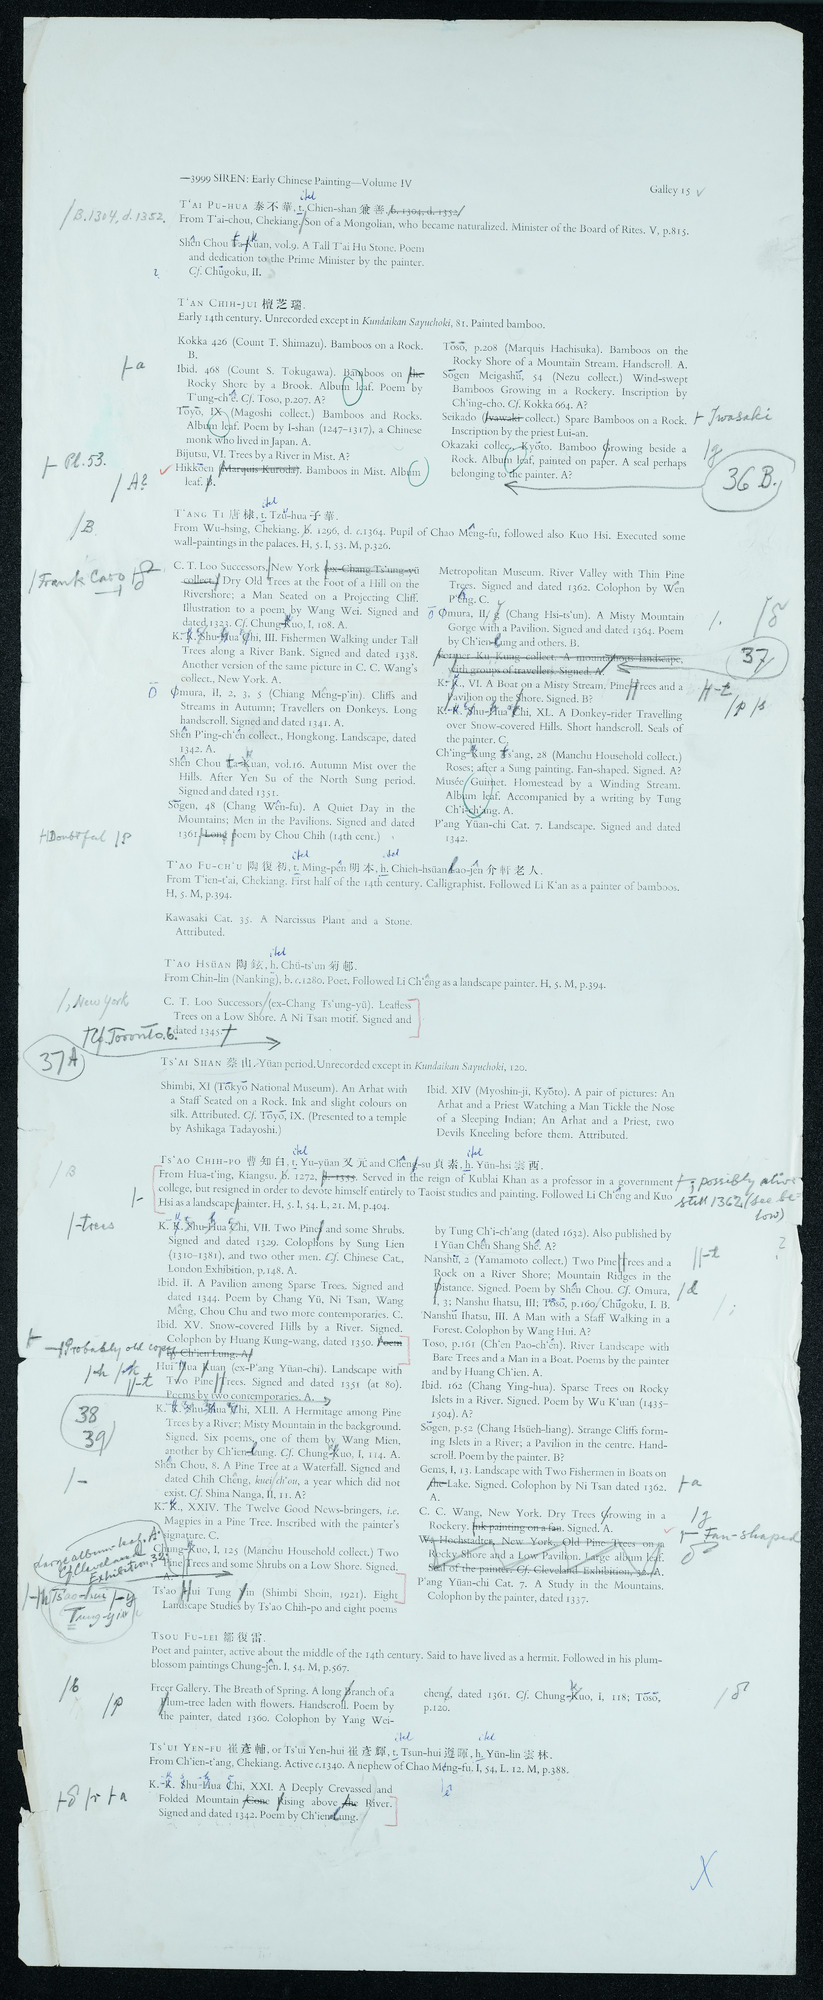 —3999 SIREN: Early Chinese Painting—Volume IV
Galley 15
T'AI PU-HUA 泰不華, t. Chien-shan 兼善, b. 1304, d. 1352
/B.1304, d. 1352.
From T'ai-chou, Chekiang. Son of a Mongolian, who became naturalized. Minister of the Board of Rites. V, p.815.
Shên Chou Ta-Kuan, vol.9. A Tall T'ai Hu Stone. Poem
and dedication to the Prime Minister by the painter.
Cf. Chūgoku, II.
T'AN CHIH-JUI 檀芝瑞.
Early 14th century. Unrecorded except in Kundaikan Sayuchoki, 81. Painted bamboo.
Kokka 426 (Count T. Shimazu). Bamboos on a Rock.
B.
Ibid. 468 (Count S. Tokugawa). Bamboos on the
Rocky Shore by a Brook. Album leaf. Poem by
T'ung-ch'ê. Cf. Toso, p.207. A?
Tōyō, IX (Magoshi collect.) Bamboos and Rocks.
Album leaf. Poem by I-shan (1247–1317), a Chinese
monk who lived in Japan. A.
Bijutsu, VI. Trees by a River in Mist. A?
Hikkōen (Marquis Kuroda). Bamboos in Mist. Album
leaf. B.
a
Pl. 53.
/ A?
Tōsō, p.208 (Marquis Hachisuka). Bamboos on the
Rocky Shore of a Mountain Stream. Handscroll. A.
Sōgen Meigashū, 54 (Nezu collect.) Wind-swept
Bamboos Growing in a Rockery. Inscription by
Ch'ing-cho. Cf. Kokka 664. A?
Seikado (Ivawaki collect.) Spare Bamboos on a Rock.
Inscription by the priest Lui-an.
Okazaki collec., Kyōto. Bamboo Growing beside a
Rock. Album leaf, painted on paper. A seal perhaps
belonging to the painter. A?
Iwasaki
/g
36 B.
T'ANG TI 唐棣, t. Tzŭ-hua 子華.
/B
From Wu-hsing, Chekiang. b. 1296, d. c.1364. Pupil of Chao Mêng-fu, followed also Kuo Hsi. Executed some
wall-paintings in the palaces. H, 5. I, 53. M, p.326.
/Frank Caro
C. T. Loo Successors, New York (ex-Chang Ts'ung-yü
collect.) Dry Old Trees at the Foot of a Hill on the
Rivershore; a Man Seated on a Projecting Cliff.
Illustration to a poem by Wang Wei. Signed and
dated 1323. Cf. Chung-Kuo, I, 108. A.
K.-K. Shu-Hua Chi, III. Fishermen Walking under Tall
Trees along a River Bank. Signed and dated 1338.
Another version of the same picture in C. C. Wang's
collect., New York. A.
Omura, II, 2, 3, 5 (Chiang Mêng-p'in). Cliffs and
Streams in Autumn; Travellers on Donkeys. Long
handscroll. Signed and dated 1341. A.
Shên P'ing-ch'ên collect., Hongkong. Landscape, dated
1342. A.
Shên Chou Ta-Kuan, vol.16. Autumn Mist over the
Hills. After Yen Su of the North Sung period.
Signed and dated 1351.
Sōgen, 48 (Chang Wên-fu). A Quiet Day in the
Mountains; Men in the Pavilions. Signed and dated
1361. Long poem by Chou Chih (14th cent.)
Doubtful /P
Metropolitan Museum. River Valley with Thin Pine
Trees. Signed and dated 1362. Colophon by Wên
P'êng. C.
Omura, II, 2 (Chang Hsi-ts'un). A Misty Mountain
Gorge with a Pavilion. Signed and dated 1364. Poem
by Ch'ien-Lung and others. B.
Former Ku Kung collect. A mountainous landscape,
with groups of travellers. Signed. A.
37
K.-K., VI. A Boat on a Misty Stream. Pine Trees and a
Pavilion on the Shore. Signed. B?
K.-K. Shu-Hua Chi, XL. A Donkey-rider Travelling
over Snow-covered Hills. Short handscroll. Seals of
the painter. C.
Ch'ing-Kung Ts'ang, 28 (Manchu Household collect.)
Roses; after a Sung painting. Fan-shaped. Signed. A?
Musée Guimet. Homestead by a Winding Stream.
Album leaf. Accompanied by a writing by Tung
Ch'i-ch'ang. A.
P'ang Yüan-chi Cat. 7. Landscape. Signed and dated
1342.
T'AO FU-CH'U 陶復初, t. Ming-pên 明本, h. Chieh-hsüan-lao-jên 介軒老人.
From T'ien-t'ai, Chekiang. First half of the 14th century. Calligraphist. Followed Li K'an as a painter of bamboos.
H, 5. M, p.394.
Kawasaki Cat. 35. A Narcissus Plant and a Stone.
Attributed.
T'AO HSÜAN 陶鉉, h. Chü-ts'un 菊邨.
From Chin-lin (Nanking), b. c.1280. Poet. Followed Li Ch'êng as a landscape painter. H, 5. M, p.394.
/, New York
C. T. Loo Successors (ex-Chang Ts'ung-yü). Leafless
Trees on a Low Shore. A Ni Tsan motif. Signed and
dated 1345.
Cf. Toronto. 6.
37A
TS'AI SHAN 蔡山. Yüan period. Unrecorded except in Kundaikan Sayuchoki, 120.
Shimbi, XI (Tōkyō National Museum). An Arhat with
a Staff Seated on a Rock. Ink and slight colours on
silk. Attributed. Cf. Tōyō, IX. (Presented to a temple
by Ashikaga Tadayoshi.)
Ibid. XIV (Myoshin-ji, Kyōto). A pair of pictures: An
Arhat and a Priest Watching a Man Tickle the Nose
of a Sleeping Indian; An Arhat and a Priest, two
Devils Kneeling before them. Attributed.
TS'AO CHIH-PO 曹知白, t. Yu-yüan 又元 and Chêng-su 貞素, h. Yün-hsi 雲西.
/B
From Hua-t'ing, Kiangsu. b. 1272, d. 1355. Served in the reign of Kublai Khan as a professor in a government
college, but resigned in order to devote himself entirely to Taoist studies and painting. Followed Li Ch'êng and Kuo
Hsi as a landscape painter. H, 5. I, 54. L, 21. M, p.404.
; possibly alive
still 1362 (see be-
low)
/-trees
K.-K. Shu-Hua Chi, VII. Two Pine and some Shrubs.
Signed and dated 1329. Colophons by Sung Lien
(1310–1381), and two other men. Cf. Chinese Cat.,
London Exhibition, p.148. A.
Ibid. II. A Pavilion among Sparse Trees. Signed and
dated 1344. Poem by Chang Yü, Ni Tsan, Wang
Mêng, Chou Chu and two more contemporaries. C.
Ibid. XV. Snow-covered Hills by a River. Signed.
Colophon by Huang Kung-wang, dated 1350. Poem
by Ch'ien Lung. A?
Probably old copy
Hui Hua Kuan (ex-P'ang Yüan-chi). Landscape with
Two Pine Trees. Signed and dated 1351 (at 80).
Poems by two contemporaries. A.
38
39
K.-K. Shu-Hua Chi, XLII. A Hermitage among Pine
Trees by a River; Misty Mountain in the background.
Signed. Six poems, one of them by Wang Mien,
another by Ch'ien-Lung. Cf. Chung-Kuo, I, 114. A.
Shên Chou, 8. A Pine Tree at a Waterfall. Signed and
dated Chih Chêng, kuei ch'ou, a year which did not
exist. Cf. Shina Nanga, II, 11. A?
K.-K., XXIV. The Twelve Good News-bringers, i.e.
Magpies in a Pine Tree. Inscribed with the painter's
signature. C.
Chung-Kuo, I, 125 (Manchu Household collect.) Two
Pine Trees and some Shrubs on a Low Shore. Signed.
A.
Large album-leaf. A.
Cf. Cleveland
Exhibition, 32.
Ts'ao Hui Tung Yin (Shimbi Shoin, 1921). Eight
Landscape Studies by Ts'ao Chih-po and eight poems
Ts'ao-hsi
Tung-yin
by Tung Ch'i-ch'ang (dated 1632). Also published by
I Yüan Chên Shang Shê. A?
Nanshū, 2 (Yamamoto collect.) Two Pine Trees and a
Rock on a River Shore; Mountain Ridges in the
Distance. Signed. Poem by Shên Chou. Cf. Omura,
I, 3; Nanshu Ihatsu, III; Tōsō, p.160; Chūgoku, I. B.
Nanshū Ihatsu, III. A Man with a Staff Walking in a
Forest. Colophon by Wang Hui. A?
Toso, p.161 (Ch'ên Pao-ch'ên). River Landscape with
Bare Trees and a Man in a Boat. Poems by the painter
and by Huang Ch'ien. A.
Ibid. 162 (Chang Ying-hua). Sparse Trees on Rocky
Islets in a River. Signed. Poem by Wu K'uan (1435–
1504). A?
Sōgen, p.52 (Chang Hsüeh-liang). Strange Cliffs form-
ing Islets in a River; a Pavilion in the centre. Hand-
scroll. Poem by the painter. B?
Gems, I, 13. Landscape with Two Fishermen in Boats on
the Lake. Signed. Colophon by Ni Tsan dated 1362.
A.
C. C. Wang, New York. Dry Trees Growing in a
Rockery. Ink painting on a fan. Signed. A.
Fan-shaped
Wa Hochstadter, New York. Old Pine Trees on a
Rocky Shore and a Low Pavilion. Large album leaf.
Seal of the painter. Cf. Cleveland Exhibition, 32. A.
P'ang Yüan-chi Cat. 7. A Study in the Mountains.
Colophon by the painter, dated 1337.
TSOU FU-LEI 鄒復雷.
Poet and painter, active about the middle of the 14th century. Said to have lived as a hermit. Followed in his plum-
blossom paintings Chung-jên. I, 54. M, p.567.
/b
/p
Freer Gallery. The Breath of Spring. A long Branch of a
Plum-tree laden with flowers. Handscroll. Poem by
the painter, dated 1360. Colophon by Yang Wei-
cheng, dated 1361. Cf. Chung-Kuo, I, 118; Tōsō,
p.120.
TS'UI YEN-FU 崔彥輔, or Ts'ui Yen-hui 崔彥輝, t. Tsun-hui 遵暉, h. Yün-lin 雲林.
From Ch'ien-t'ang, Chekiang. Active c.1340. A nephew of Chao Mêng-fu. I, 54, L. 12. M, p.388.
K.-K. Shu-Hua Chi, XXI. A Deeply Crevassed and
Folded Mountain Cone Rising above the River.
Signed and dated 1342. Poem by Ch'ien-Lung.
X